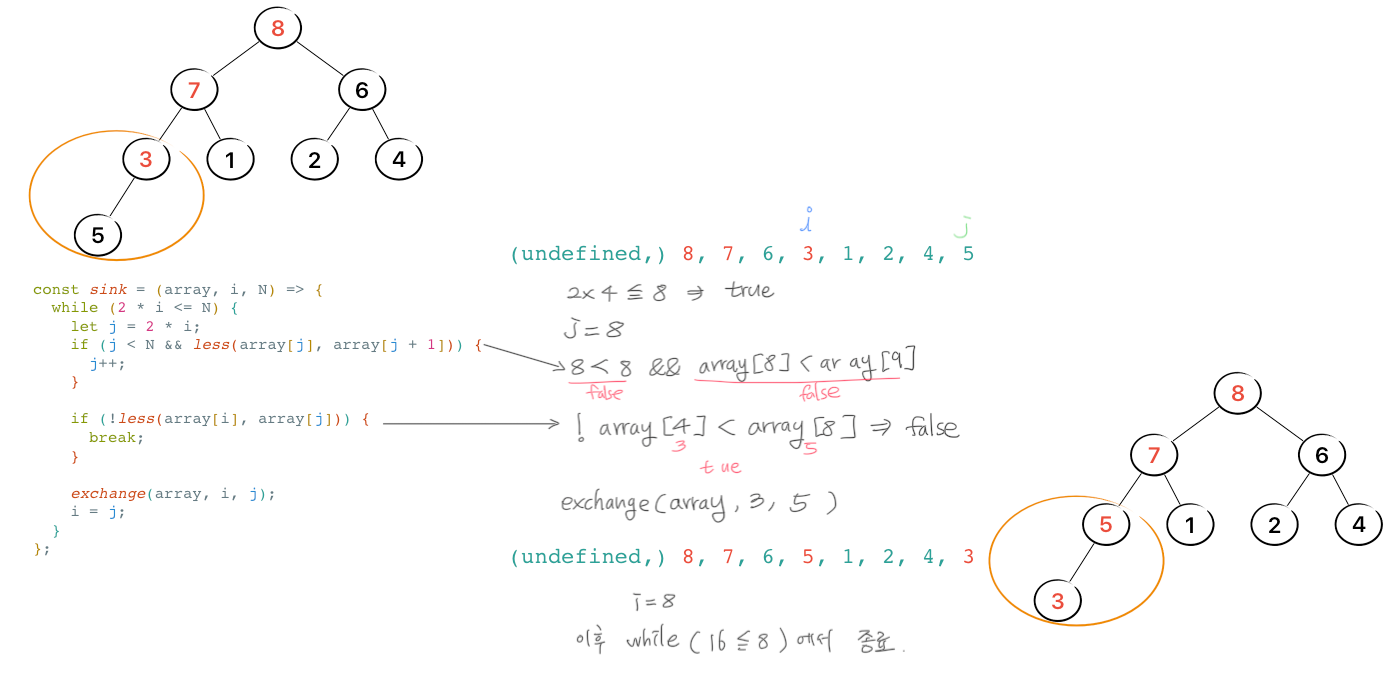 8
7 6
3 1 2 4
5
const sink = (array, i, N) => {
while (2 * i <= N) {
let j = 2 * i;
if (j < N && less(array[j], array[j + 1])) {
j++;
}
if (!less(array[i], array[j])) {
break;
}
exchange(array, i, j);
i = j;
}
};
i j
(undefined,) 8, 7, 6, 3, 1, 2, 4, 5
2x4 ≦ 8 ⇒ true
j=8
8 < 8 && array[8] < ar ay[9]
false false
! array[4] < array[8] ⇒ false
3 5
t ue
exchange(array, 3, 5 )
(undefined,) 8, 7, 6, 5, 1, 2, 4, 3
i=8
이후 while (16 ≦ 8) 에서 종료.
8
7 6
5 1 2 4
3